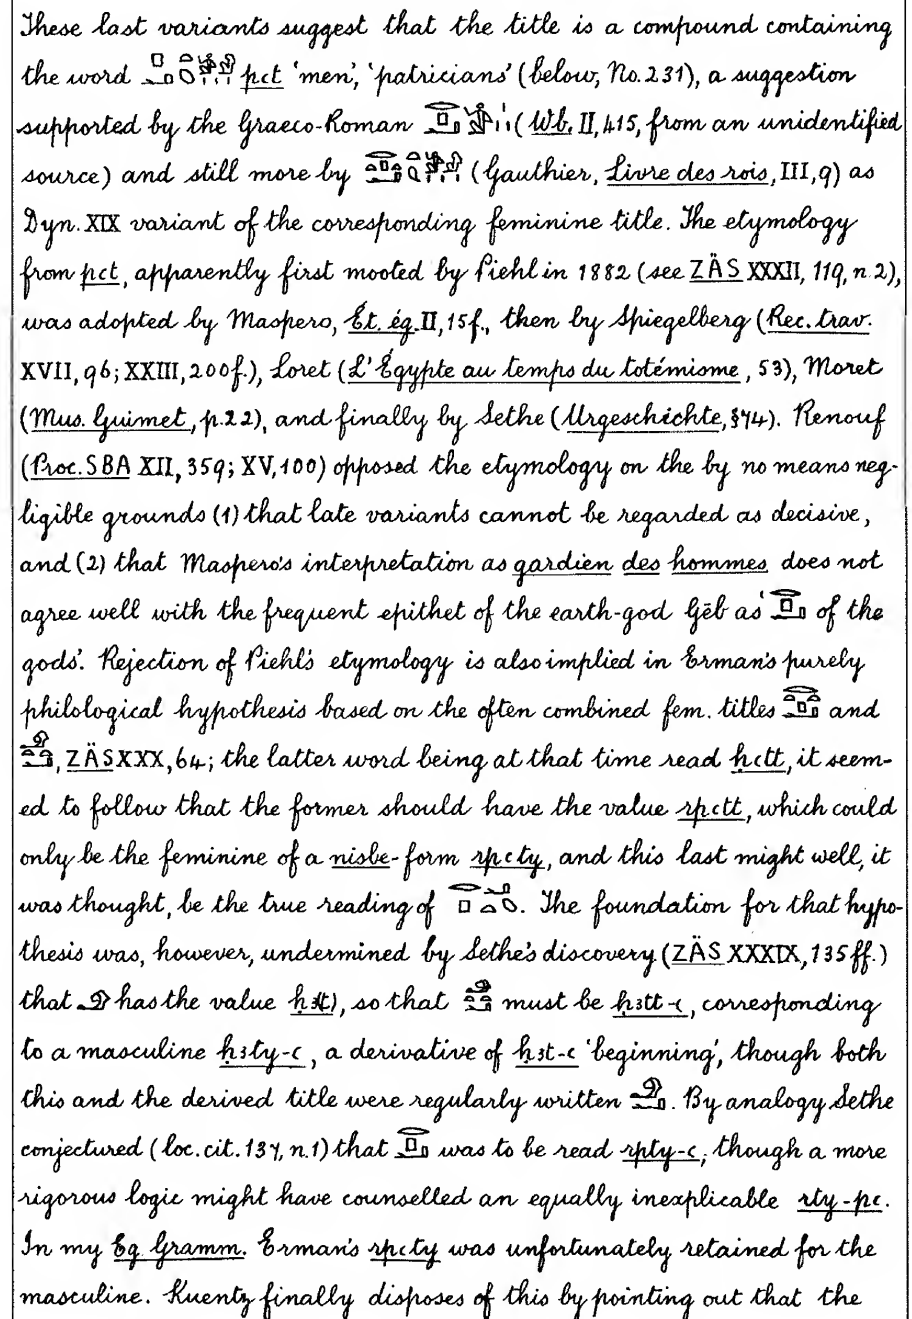 These last variants suggest that the title is a compound containing
the word pꜥt 'men', 'patricians' (below, No. 231), a suggestion
supported by the Graeco-Roman (Wb. II, 415, from an unidentified
source) and still more by (Gauthier, Livre des rois, III, 9) as
Dyn. XIX variant of the corresponding feminine title. The etymology
from pꜥt, apparently first mooted by Piehl in 1882 (see ZÄS XXXII, 119, n. 2),
was adopted by Maspero, Ét. ég. II, 15f., then by Spiegelberg (Rec. trav.
XVII, 96; XXIII, 200f.), Loret (L'Égypte au temps du totémisme, 53), Moret
(Mus. Guimet, p. 22), and finally by Sethe (Urgeschichte, §74). Renouf
(Proc. SBA XII, 359; XV, 100) opposed the etymology on the by no means neg-
ligible grounds (1) that late variants cannot be regarded as decisive,
and (2) that Maspero's interpretation as gardien des hommes does not
agree well with the frequent epithet of the earth-god Gēb as ' of the
gods'. Rejection of Piehl's etymology is also implied in Erman's purely
philological hypothesis based on the often combined fem. titles and
, ZÄS XXX, 64; the latter word being at that time read ḥꜥtt, it seem-
ed to follow that the former should have the value rpꜥtt, which could
only be the feminine of a nisbe-form rpꜥty, and this last might well, it
was thought, be the true reading of . The foundation for that hypo-
thesis was, however, undermined by Sethe's discovery (ZÄS XXXIX, 135 ff.)
that has the value ḥꜣt), so that must be ḥꜣtt-ꜥ, corresponding
to a masculine ḥꜣty-ꜥ, a derivative of ḥꜣt-ꜥ 'beginning', though both
this and the derived title were regularly written . By analogy Sethe
conjectured (loc. cit. 137, n. 1) that was to be read rpty-ꜥ, though a more
rigorous logic might have counselled an equally inexplicable rty-pꜥ.
In my Eg. Gramm. Erman's rpꜥty was unfortunately retained for the
masculine. Kuentz finally disposes of this by pointing out that the